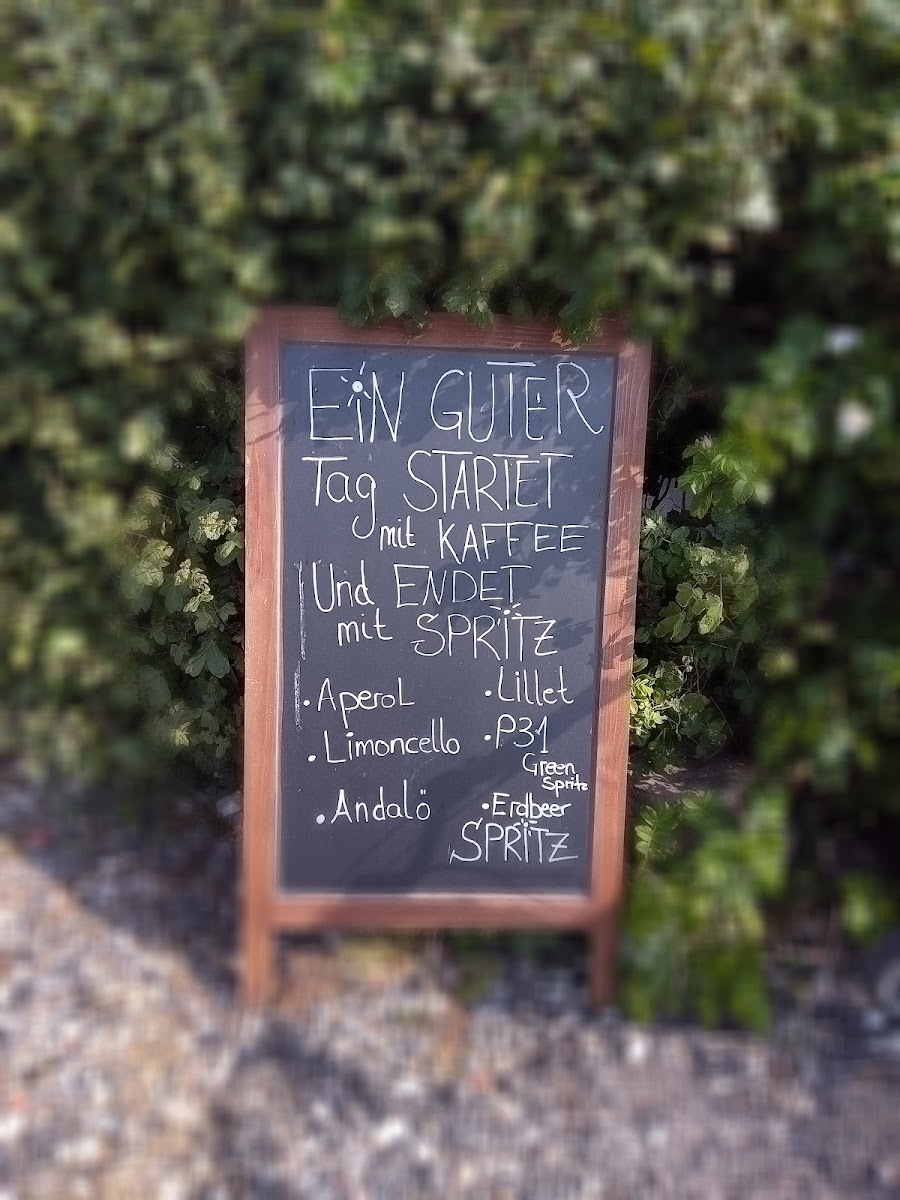 EIN GUTER
Tag STARTET
mit KAFFEE
Und ENDET
mit SPRITZ
• Aperol
• Limoncello
• Andalö
• Lillet
• P31
Green
Spritz
• Erdbeer
SPRITZ